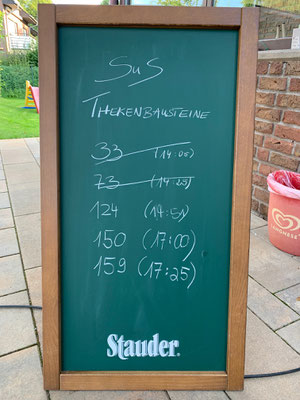 SuS
THEKENBAUSTEINE
33 (14:05)
73 (14:25)
124 (14:51)
150 (17:00)
159 (17:25)
Stauder
LANGNESE